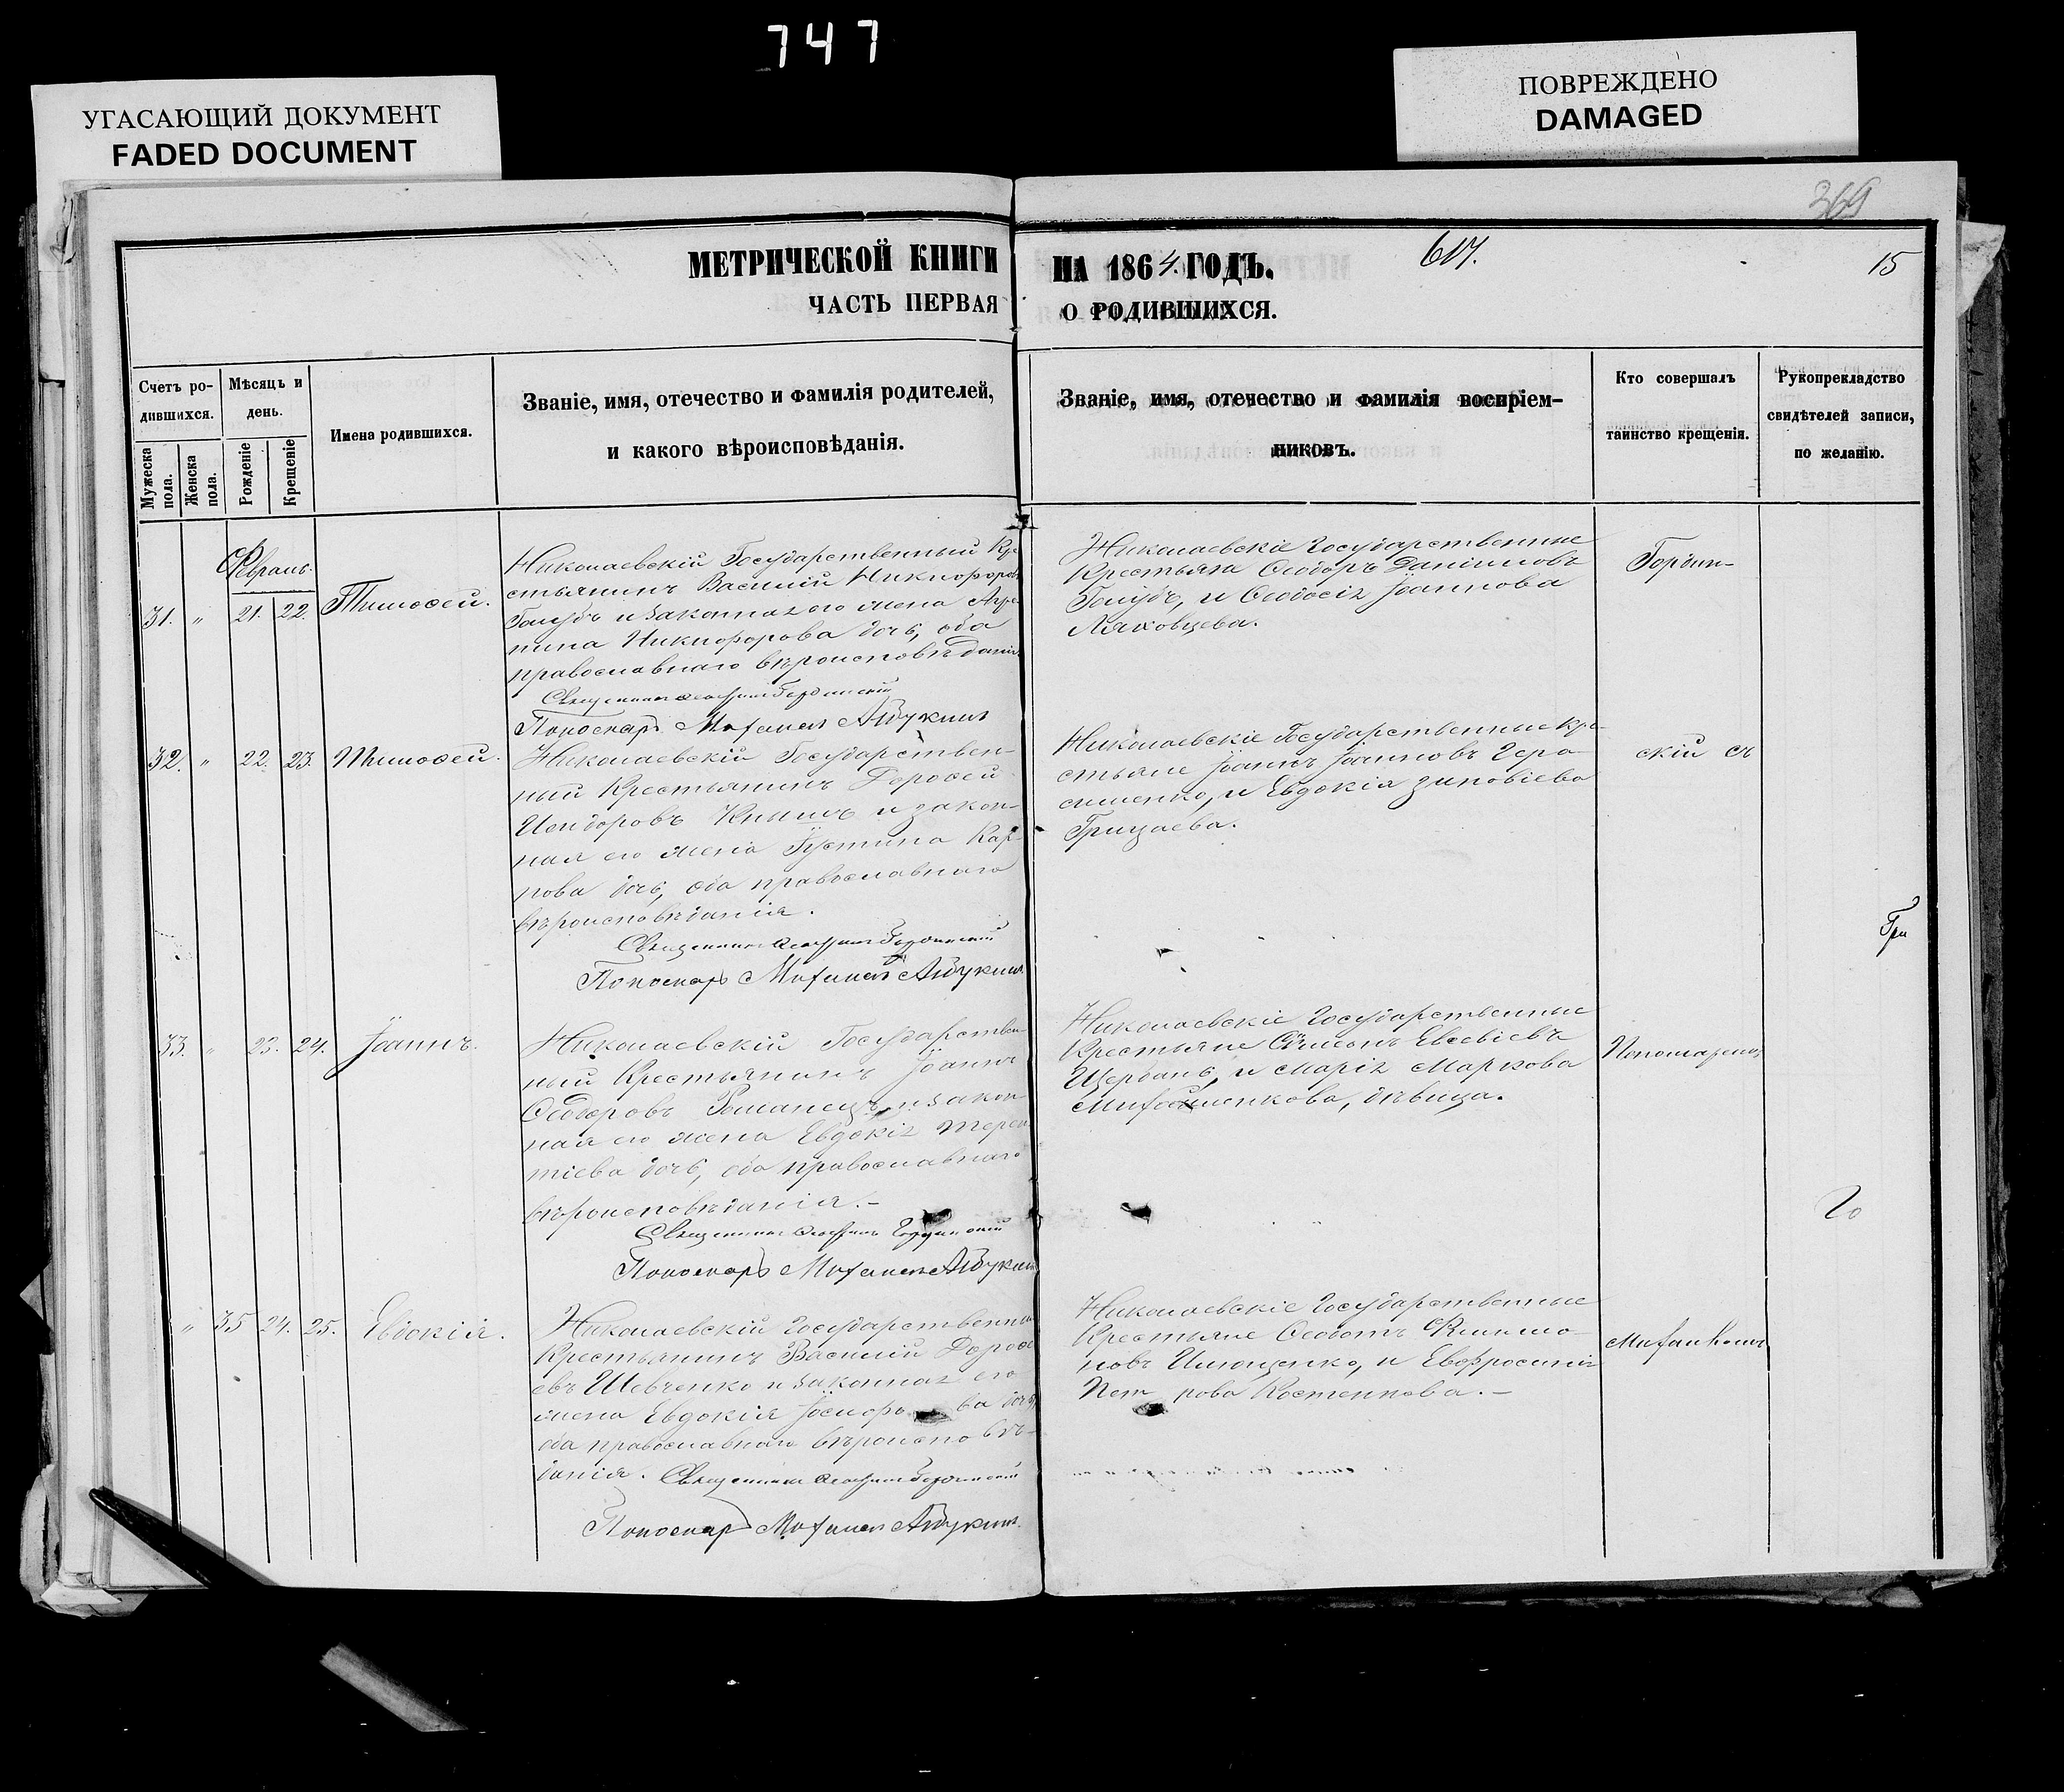 747
УГАСАЮЩИЙ ДОКУМЕНТ
FADED DOCUMENT
ПОВРЕЖДЕНО
DAMAGED
369
МЕТРИЧЕСКОЙ КНИГИ НА 1864. ГОДЪ.
617.
15
ЧАСТЬ ПЕРВАЯ О РОДИВШИХСЯ.
Счетъ ро-
дившихся.
Мужеска пола.
Женска пола.
Мѣсяцъ и
день.
Рожденіе
Крещеніе
Имена родившихся.
Званіе, имя, отечество и фамилія родителей,
и какого вѣроисповѣданія.
Званіе, имя, отечество и фамилія воспріем-
никовъ.
Кто совершалъ
таинство крещенія.
Рукоприкладство
свидѣтелей записи,
по желанію.
Февраль.
31. " 21. 22. Тимоѳей.
Николаевскій Государственный Кре
стьянинъ Василій Никифоровъ
Голубъ и законная его жена Агре-
пина Никифорова дочь, оба
православнаго вѣроисповѣданія
Священникъ Гординскій
Пономарь Михаилъ
Николаевскіе Государственные
Крестьяна Ѳеодоръ Даніиловъ
Голубъ, и Ѳеодосія Іоаннова
Ляховцева.
Гордин-
32. " 22. 23. Тимоѳей.
Николаевскій Государствен-
ный Крестьянинъ Дороѳей
Исидоровъ Книшъ и закон-
ная его жена Іустина Кар-
пова дочь, оба православнаго
вѣроисповѣданія.
Священникъ Гординскій
Пономарь Михаилъ
Николаевскіе Государственные Кре-
стьяне Іоаннъ Іоанновъ Гера-
сименко, и Евдокія Зиновіева
Грицаева.
скій съ
Гри
33. " 23. 24. Іоаннъ.
Николаевскій Государствен-
ный Крестьянинъ Іоаннъ
Ѳеодоровъ Романецъ и закон-
ная его жена Евдокія Терен
тіева дочь, оба православнаго
вѣроисповѣданія.-
Священникъ Гординскій
Пономарь Михаилъ
Николаевскіе Государственные
Крестьяне Сѵмеонъ Евсевіевъ
Щербань, и Марія Маркова
дѣвица.
Пономаремъ
Го
" 35 24. 25. Евдокія.
Николаевскій Государственный
Крестьянинъ Василій Дороѳе
евъ Шевченко и законная его
жена Евдокія ва дочь,
оба православнаго вѣроисповѣ-
данія. Священникъ Гординскій
Пономарь Михаилъ
Николаевскіе Государственные
Крестьяне Ѳеодотъ Филимо-
новъ Ильющенко, и Евфросинія
Пет рова Костенкова.-
Михаиломъ